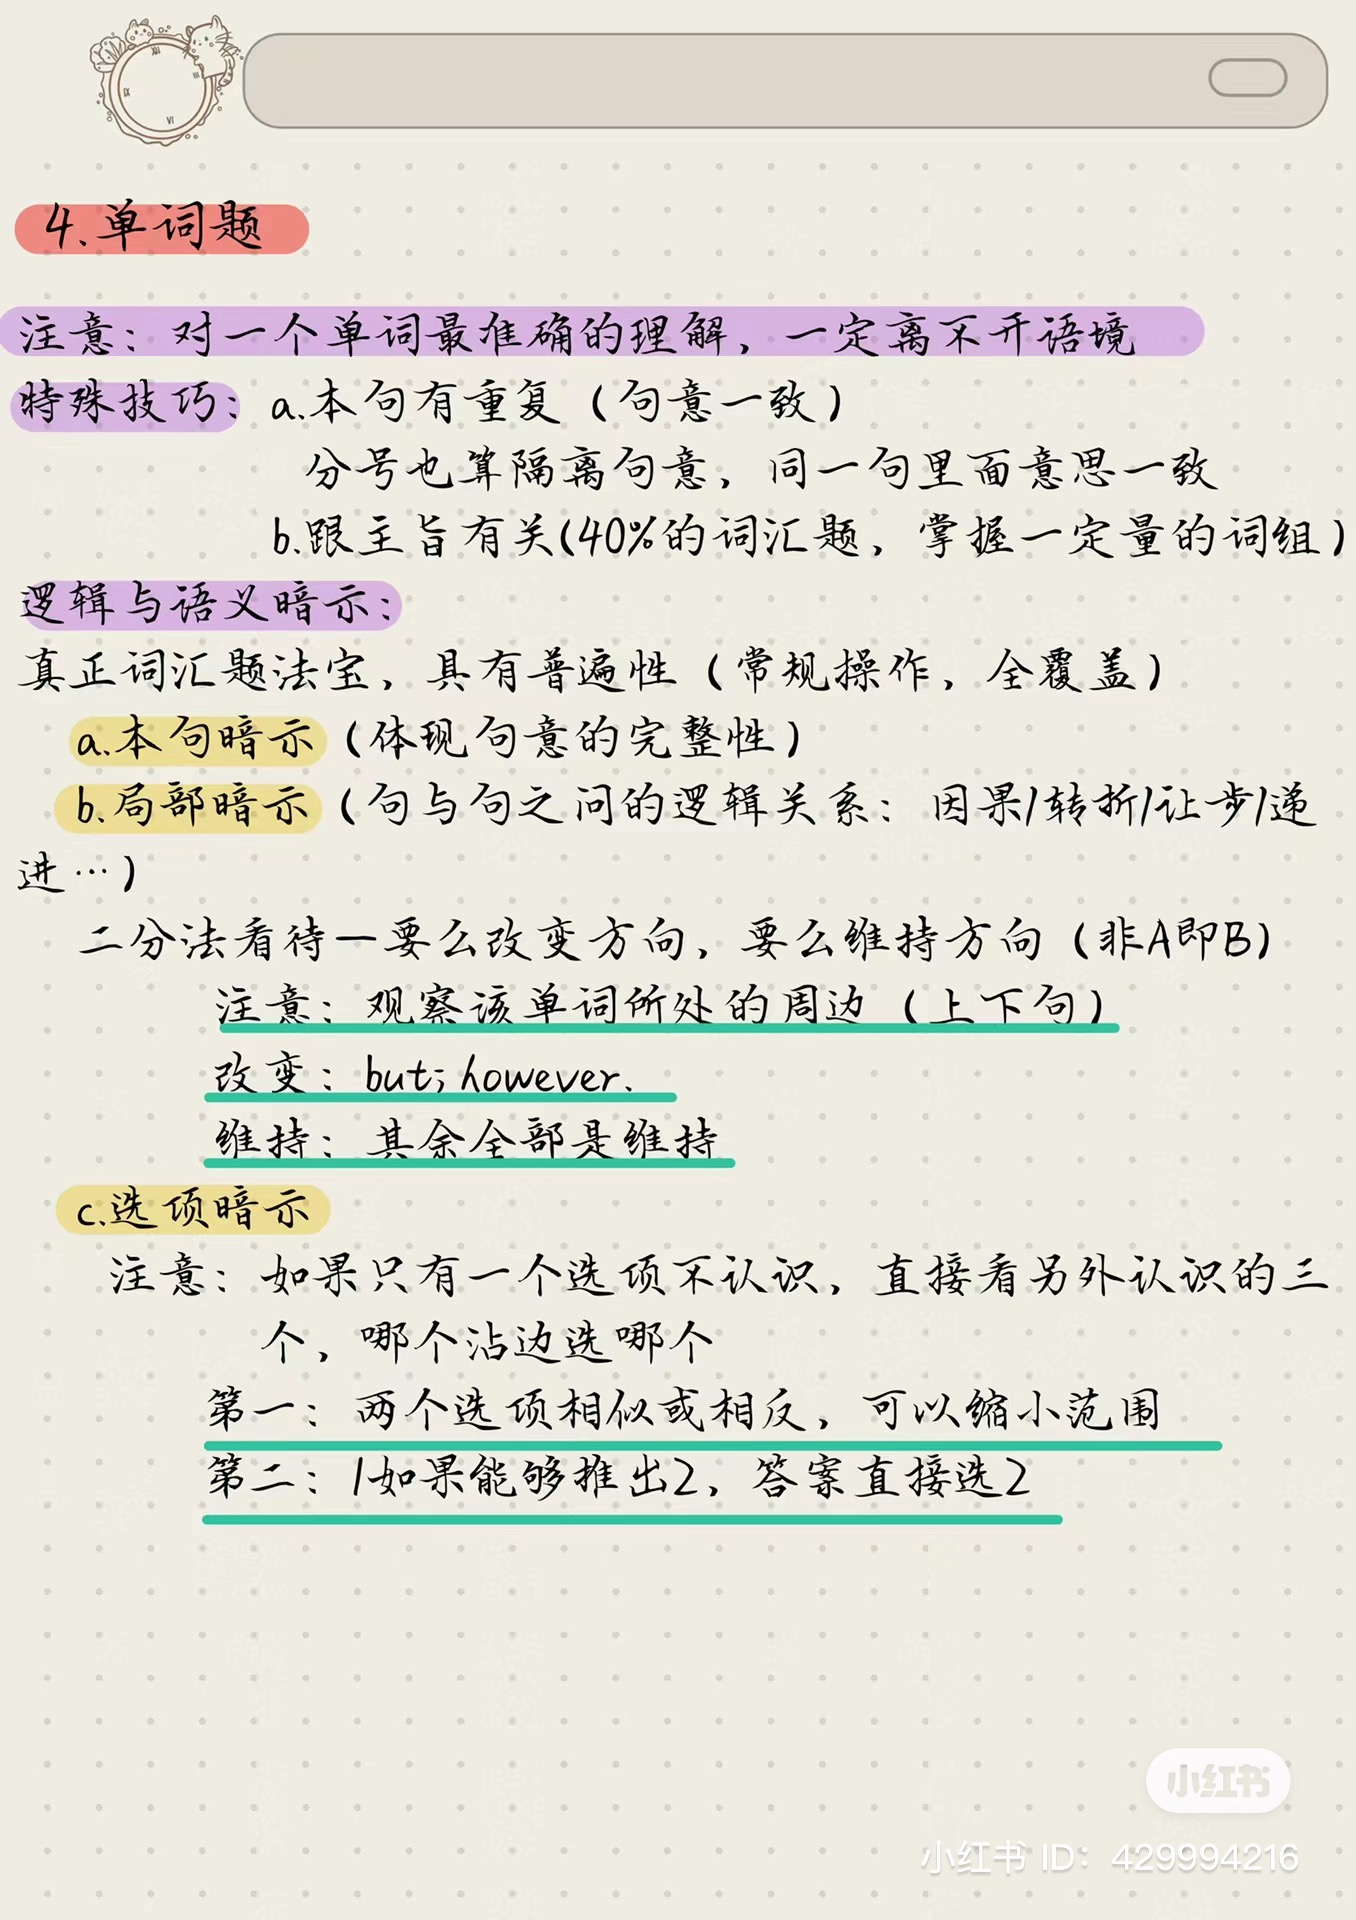 4.单词题
注意：对一个单词最准确的理解，一定离不开语境
特殊技巧：a.本句有重复（句意一致）
分号也算隔离句意，同一句里面意思一致
b.跟主旨有关(40%的词汇题，掌握一定量的词组)
逻辑与语义暗示：
真正词汇题法宝，具有普遍性（常规操作，全覆盖）
a.本句暗示（体现句意的完整性）
b.局部暗示（句与句之间的逻辑关系：因果/转折/让步/递
进…）
二分法看待一要么改变方向，要么维持方向（非A即B）
注意：观察该单词所处的周边（上下句）
改变：but; however.
维持：其余全部是维持
c.选项暗示
注意：如果只有一个选项不认识，直接看另外认识的三
个，哪个沾边选哪个
第一：两个选项相似或相反，可以缩小范围
第二：1如果能够推出2，答案直接选2
小红书
小红书 ID：429994216